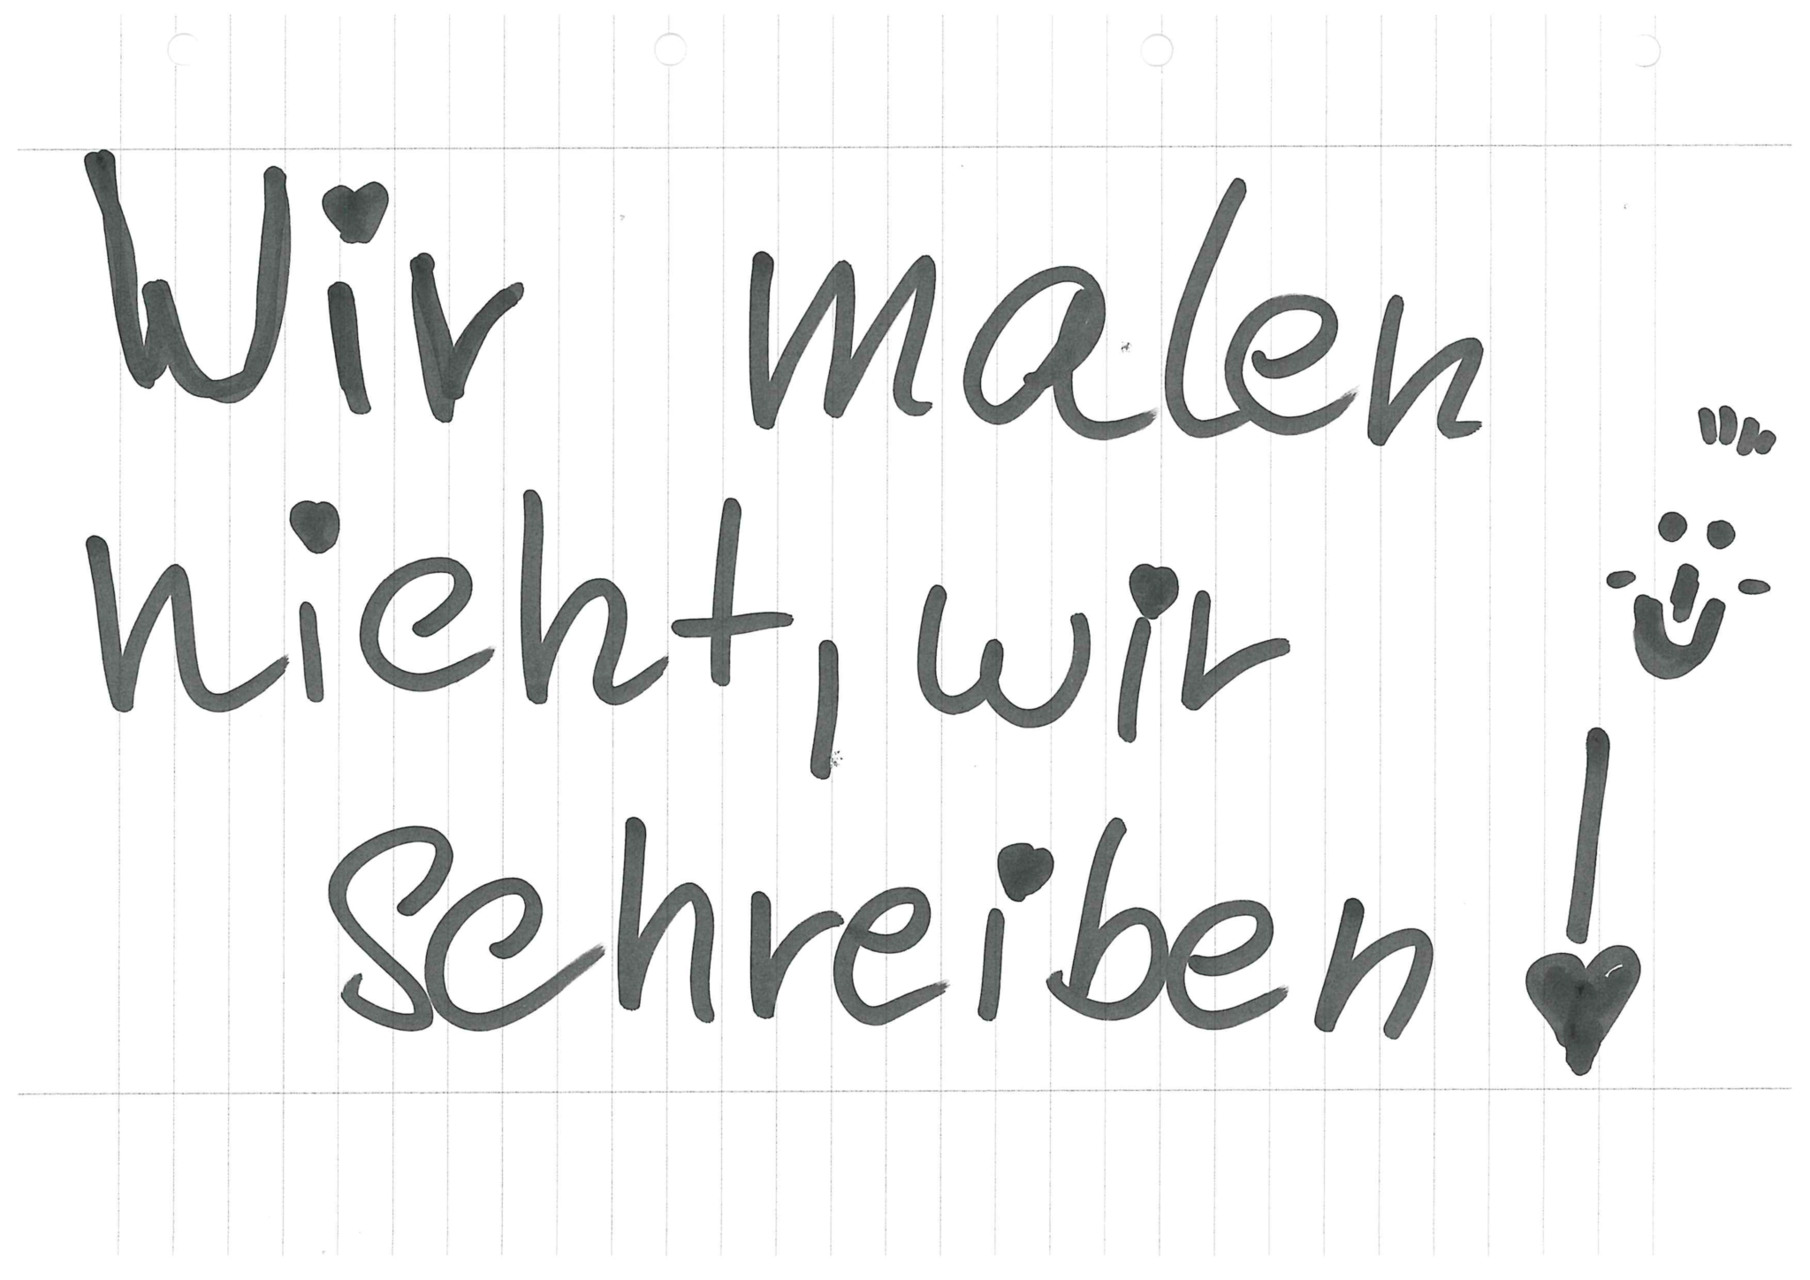 Wir malen
nicht, wir
schreiben!